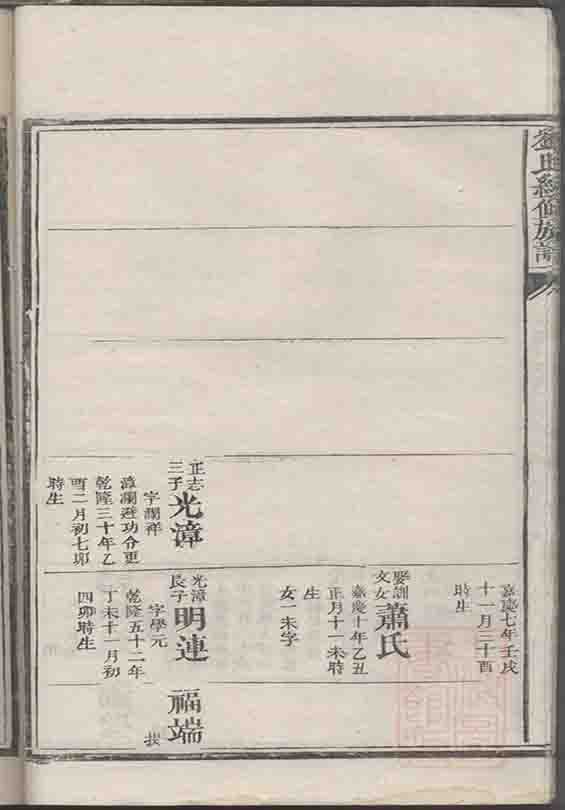 劉氏經修族譜
正志
三子
光漳
字瀾祥
漳瀾遊功令更
乾隆三十年乙
酉二月初七卯
時生
嘉慶七年壬戌
十一月三十酉
時生
娶訓
文女
蕭氏
嘉慶十年乙丑
正月十一未時
生
女一未字
光漳
長子
明連
字學元
乾隆五十二年
丁未十一月初
四卯時生
福端